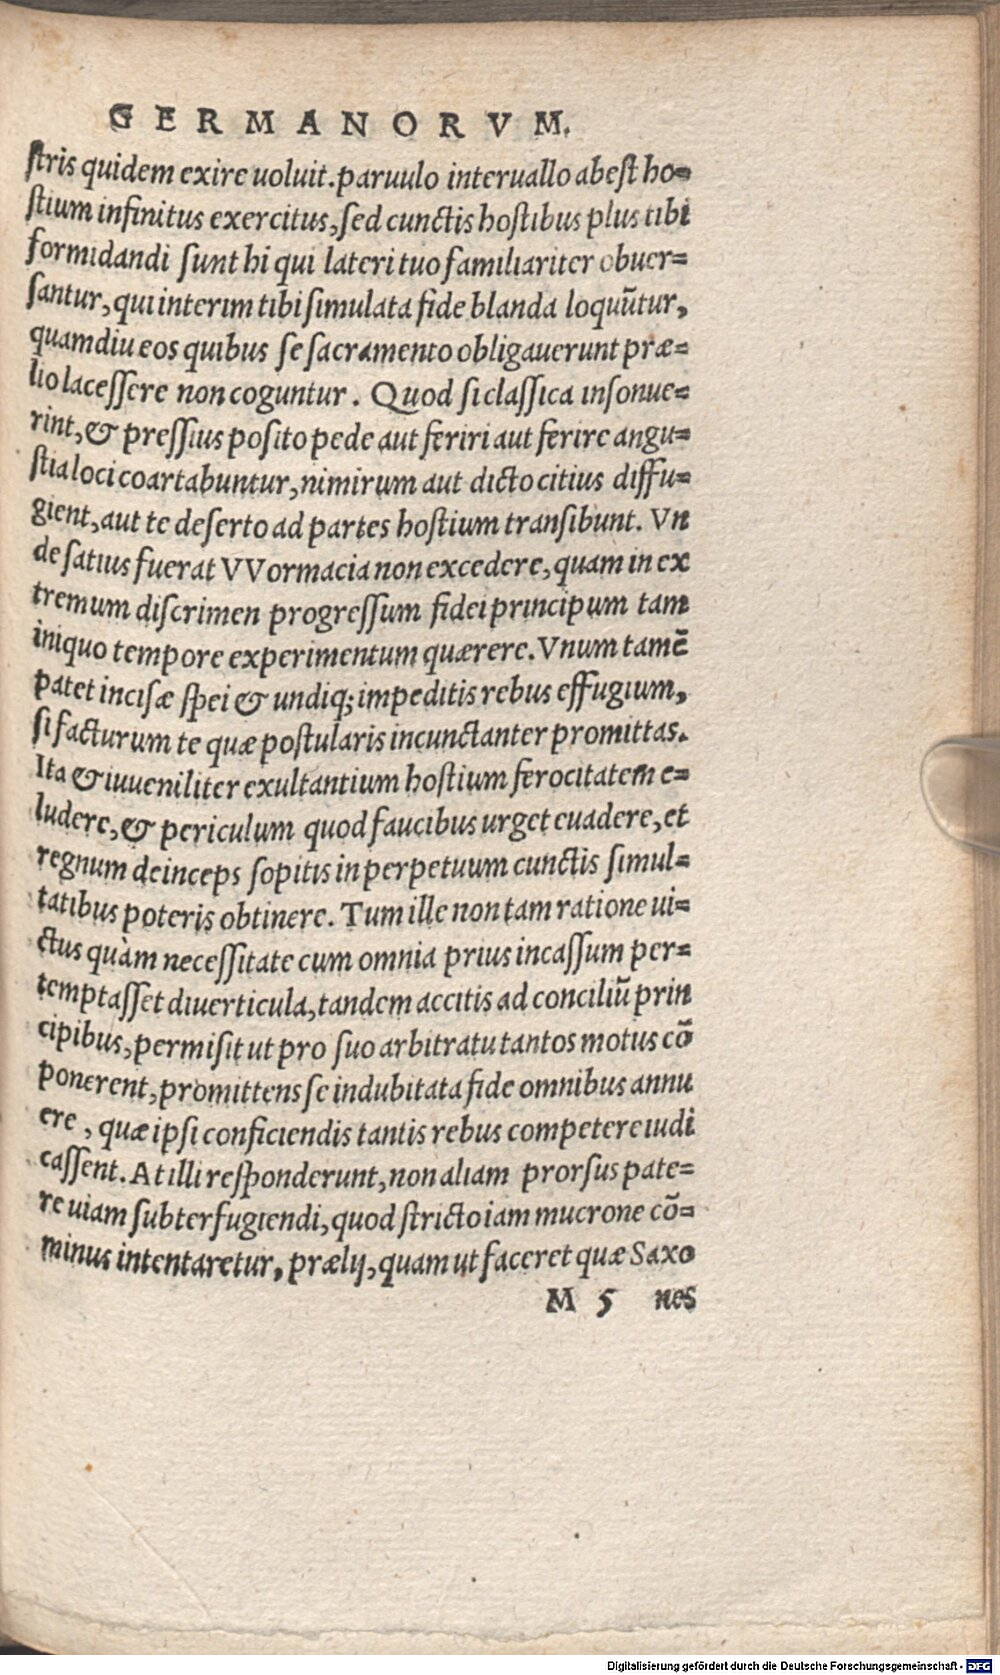 GERMANORVM.
stris quidem exire uoluit. paruulo interuallo abest ho=
stium infinitus exercitus, sed cunctis hostibus plus tibi
formidandi sunt hi qui lateri tuo familiariter obuer=
santur, qui interim tibi simulata fide blanda loquūtur,
quamdiu eos quibus se sacramento obligauerunt præ=
lio lacessere non coguntur. Quod si classica insonue=
rint, & pressius posito pede aut feriri aut ferire angu=
stia loci coartabuntur, nimirum aut dicto citius diffu=
gient, aut te deserto ad partes hostium transibunt. Vn
de satius fuerat VVormacia non excedere, quam in ex
tremum discrimen progressum fidei principum tam
iniquo tempore experimentum quærere. Vnum tamē
patet incisæ spei & undiq; impeditis rebus effugium,
si facturum te quæ postularis incunctanter promittas.
Ita & iuueniliter exultantium hostium ferocitatem e=
ludere, & periculum quod faucibus urget euadere, et
regnum deinceps sopitis in perpetuum cunctis simul=
tatibus poteris obtinere. Tum ille non tam ratione ui=
ctus quàm necessitate cum omnia prius incassum per=
temptasset diuerticula, tandem accitis ad conciliū prin
cipibus, permisit ut pro suo arbitratu tantos motus cō
ponerent, promittens se indubitata fide omnibus annu
ere, quæ ipsi conficiendis tantis rebus competere iudi
cassent. At illi responderunt, non aliam prorsus pate=
re uiam subterfugiendi, quod stricto iam mucrone cō=
minus intentaretur, prælij, quam ut faceret quæ Saxo
M 5 nes
Digitalisierung gefördert durch die Deutsche Forschungsgemeinschaft - DFG